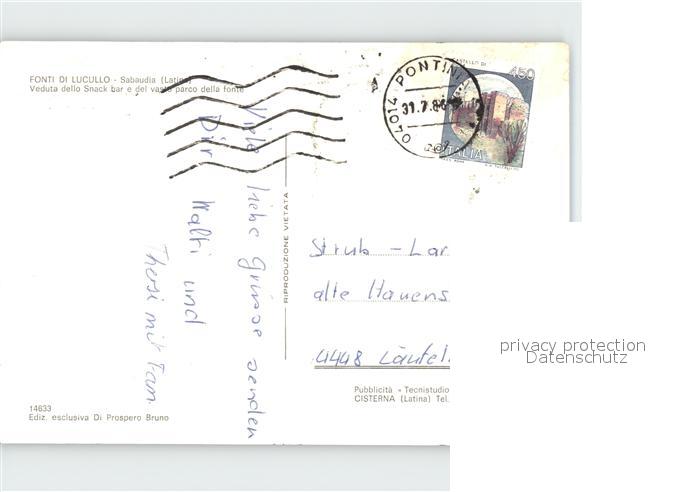 FONTI DI LUCULLO - Sabaudia (Latina)
Veduta dello Snack bar e del vasto parco della fonte
Viele liebe grüsse senden
Dir
Walti und
Thesi mit Fam.
RIPRODUZIONE VIETATA
04014 PONTINIA
31.7.86
CASTELLO DI
450
ITALIA
Strub - Lar
alte Hauens
4448 Läufel
Pubblicità « Tecnostudio
CISTERNA (Latina) Tel.
14633
Ediz. esclusiva Di Prospero Bruno
privacy protection
Datenschutz